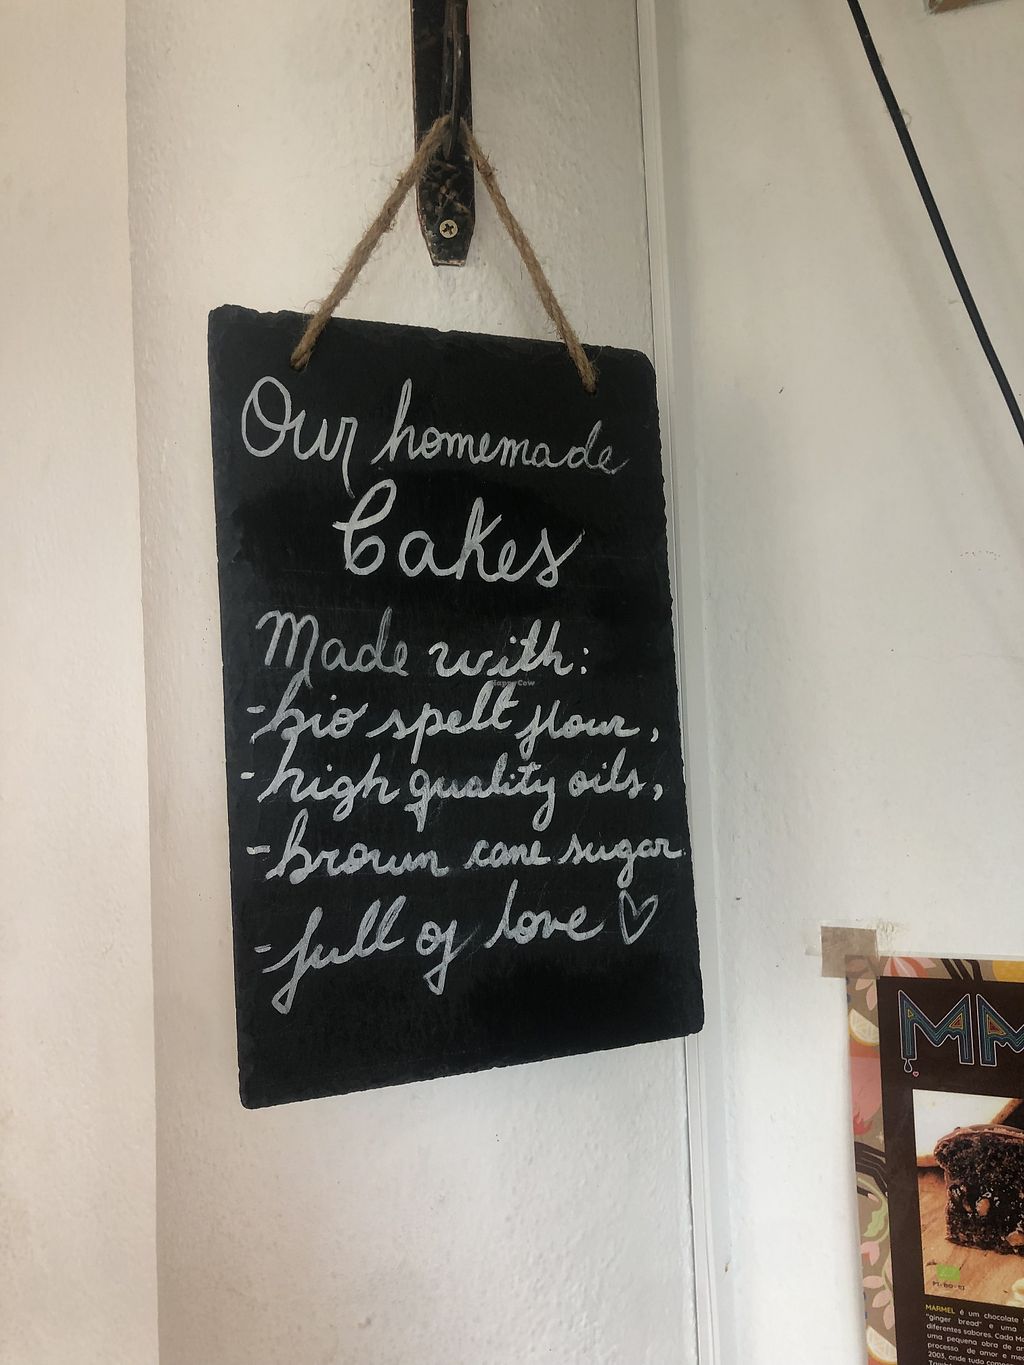 Our homemade
Cakes
Made with:
HappyCow
-bio spelt flour,
-high quality oils,
-brown cane sugar
-full of love ♡
MM
PT-BIO-03
MARMEL é um chocolate
"ginger bread" e uma
diferentes sabores. Cada
uma pequena obra de
processo de amor e
2003, onde tudo